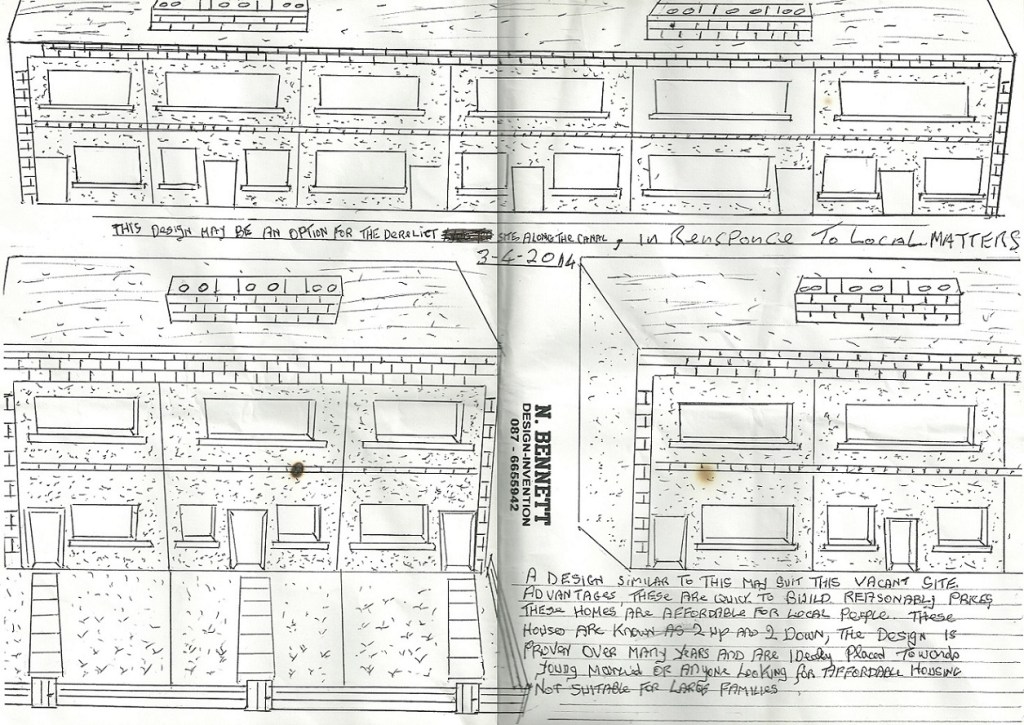 THIS DESIGN MAY BE AN OPTION FOR THE DERELICT SITE ALONG THE CANAL, in Rensponce To Local MATTERS
3-4-2014
N. BENNETT
DESIGN-INVENTION
087 - 6665942
A DESIGN SIMILAR TO THIS MAY SUIT THIS VACANT SITE.
ADVANTAGES, THESE ARE QUICK TO BUILD REASONABLY PRICES
THESE HOMES ARE AFFORDABLE FOR LOCAL PEOPLE. THESE
HOUSES ARE KNOWN AS 2 UP AND 2 DOWN, THE DESIGN IS
PROVEN OVER MANY YEARS AND ARE IDEALY PLACED TOWARDS
YOUNG MARRIED OR ANYONE LOOKING FOR AFFORDABLE HOUSING
NOT SUITABLE FOR LARGE FAMILIES